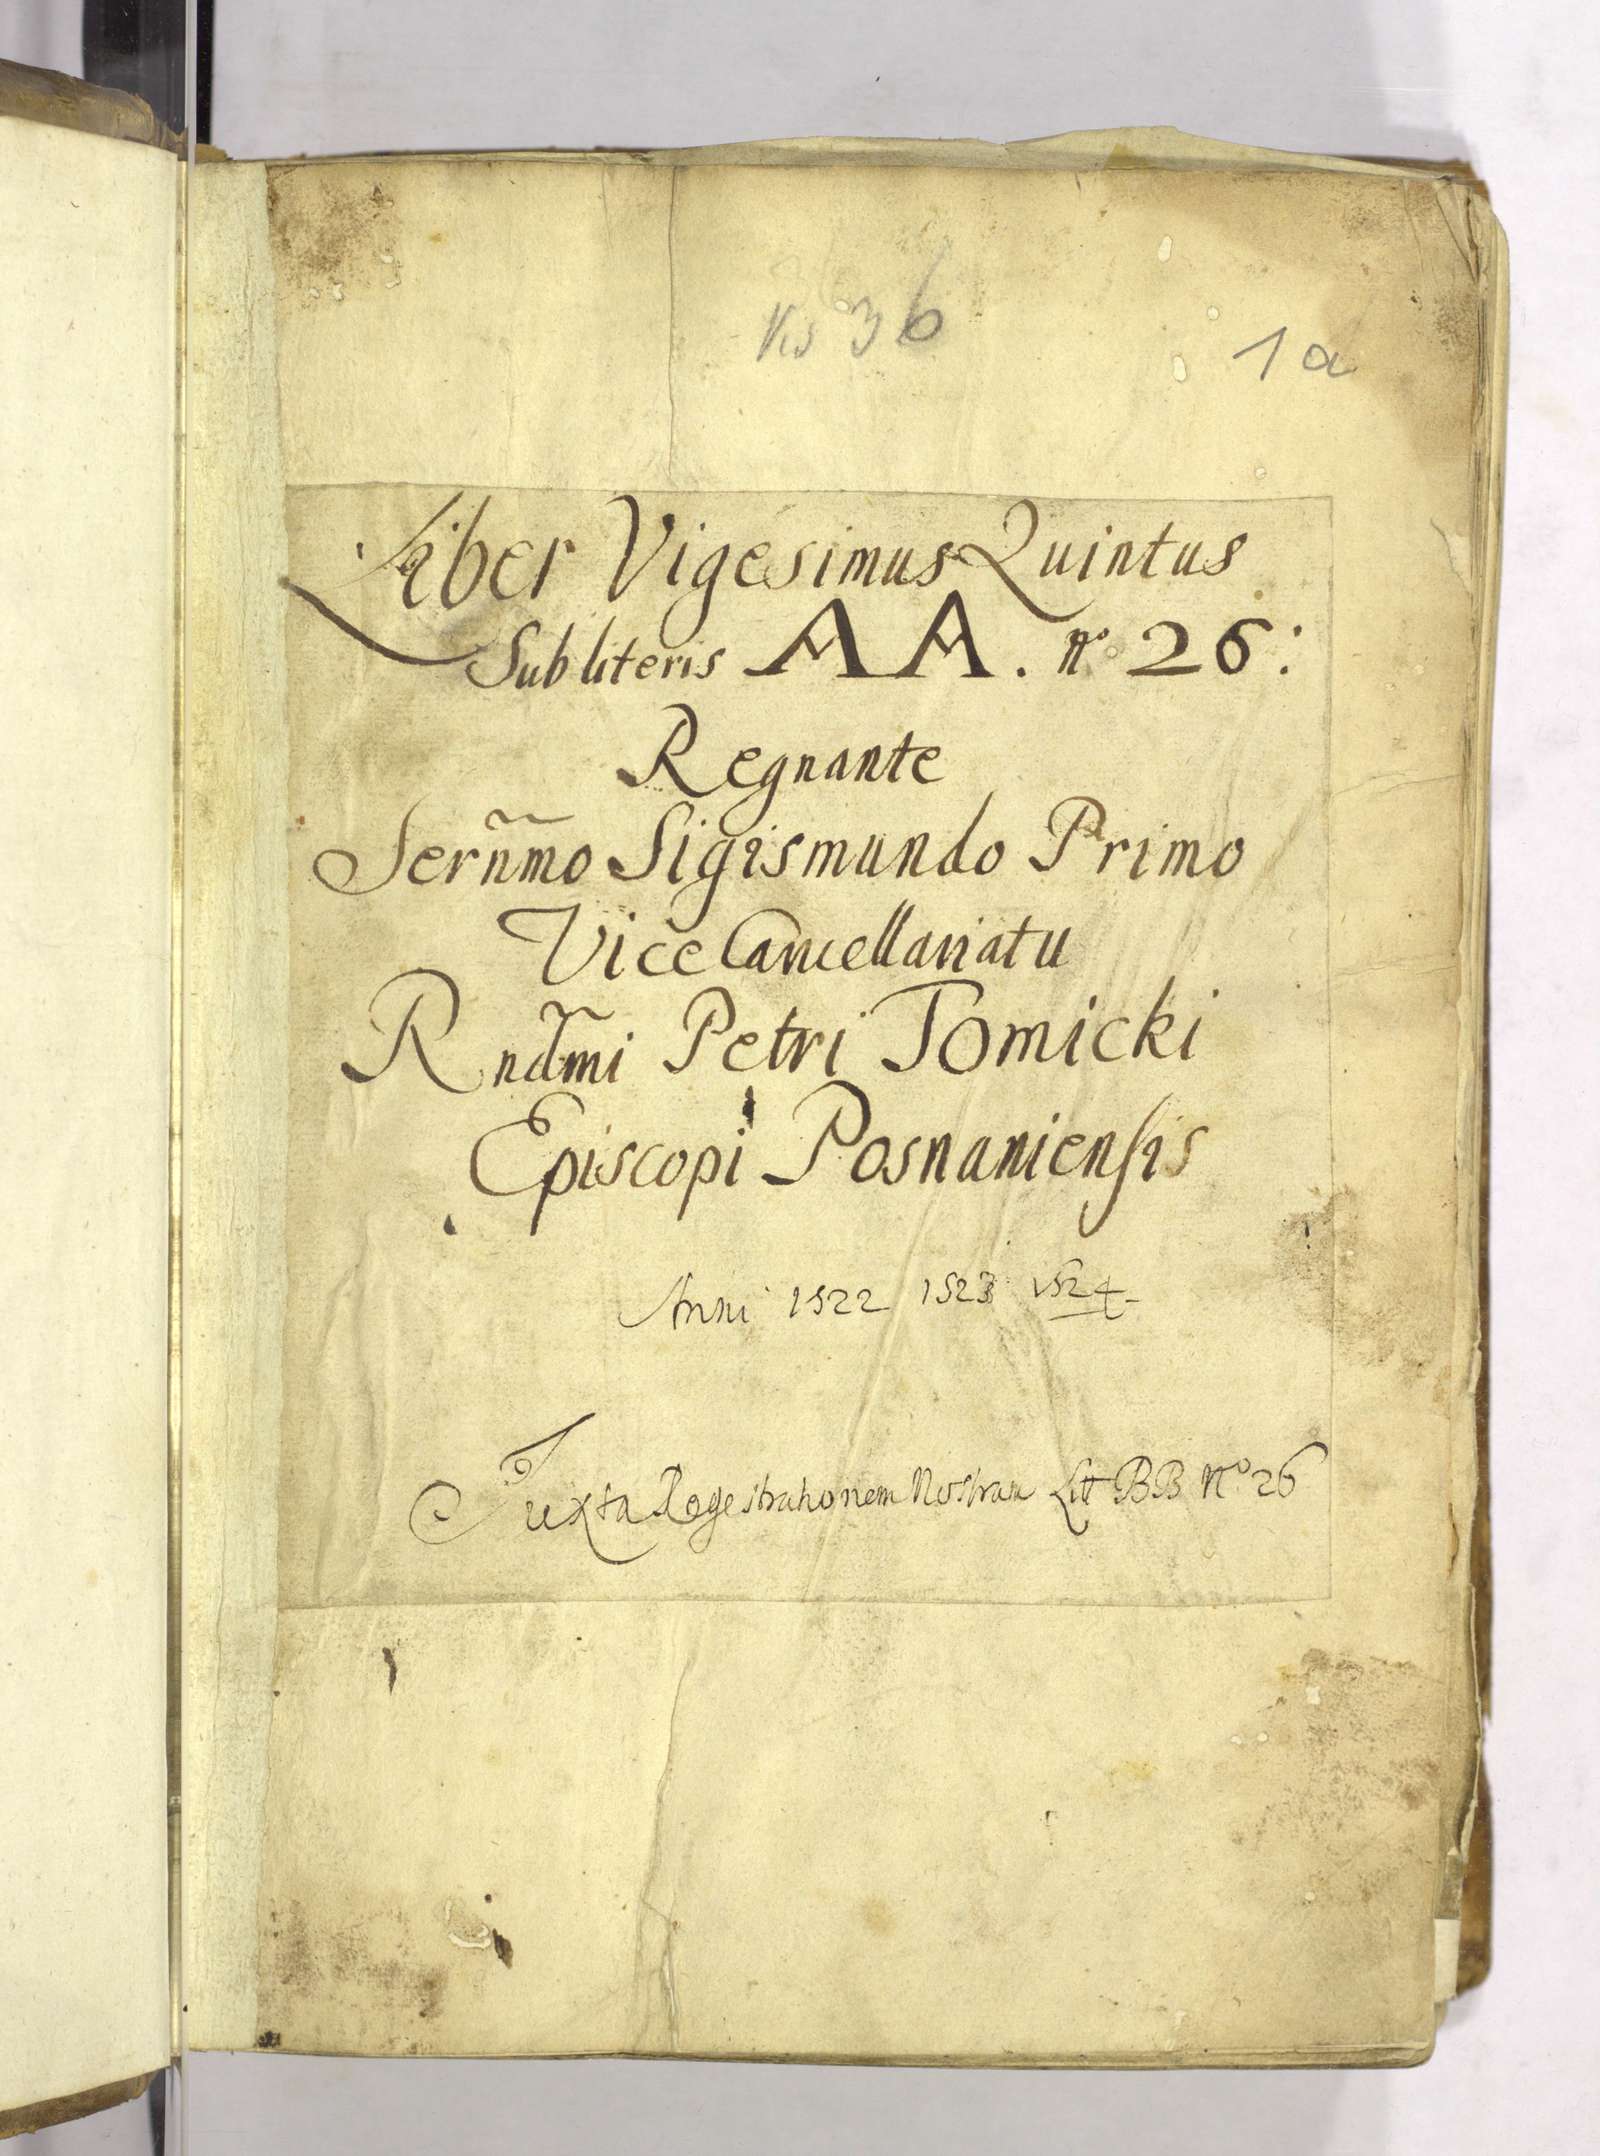 36
1a
Liber Vigesimus Quintus
Sub literis AA. nº 26:
Regnante
Serñmo Sigismundo Primo
Vice Cancellariatu
Rnd̃mi Petri Tomicki
Episcopi Posnaniensis
Anni 1522 1523 1524
Juxta Regestrationem Nostram Litt BB Nº 26